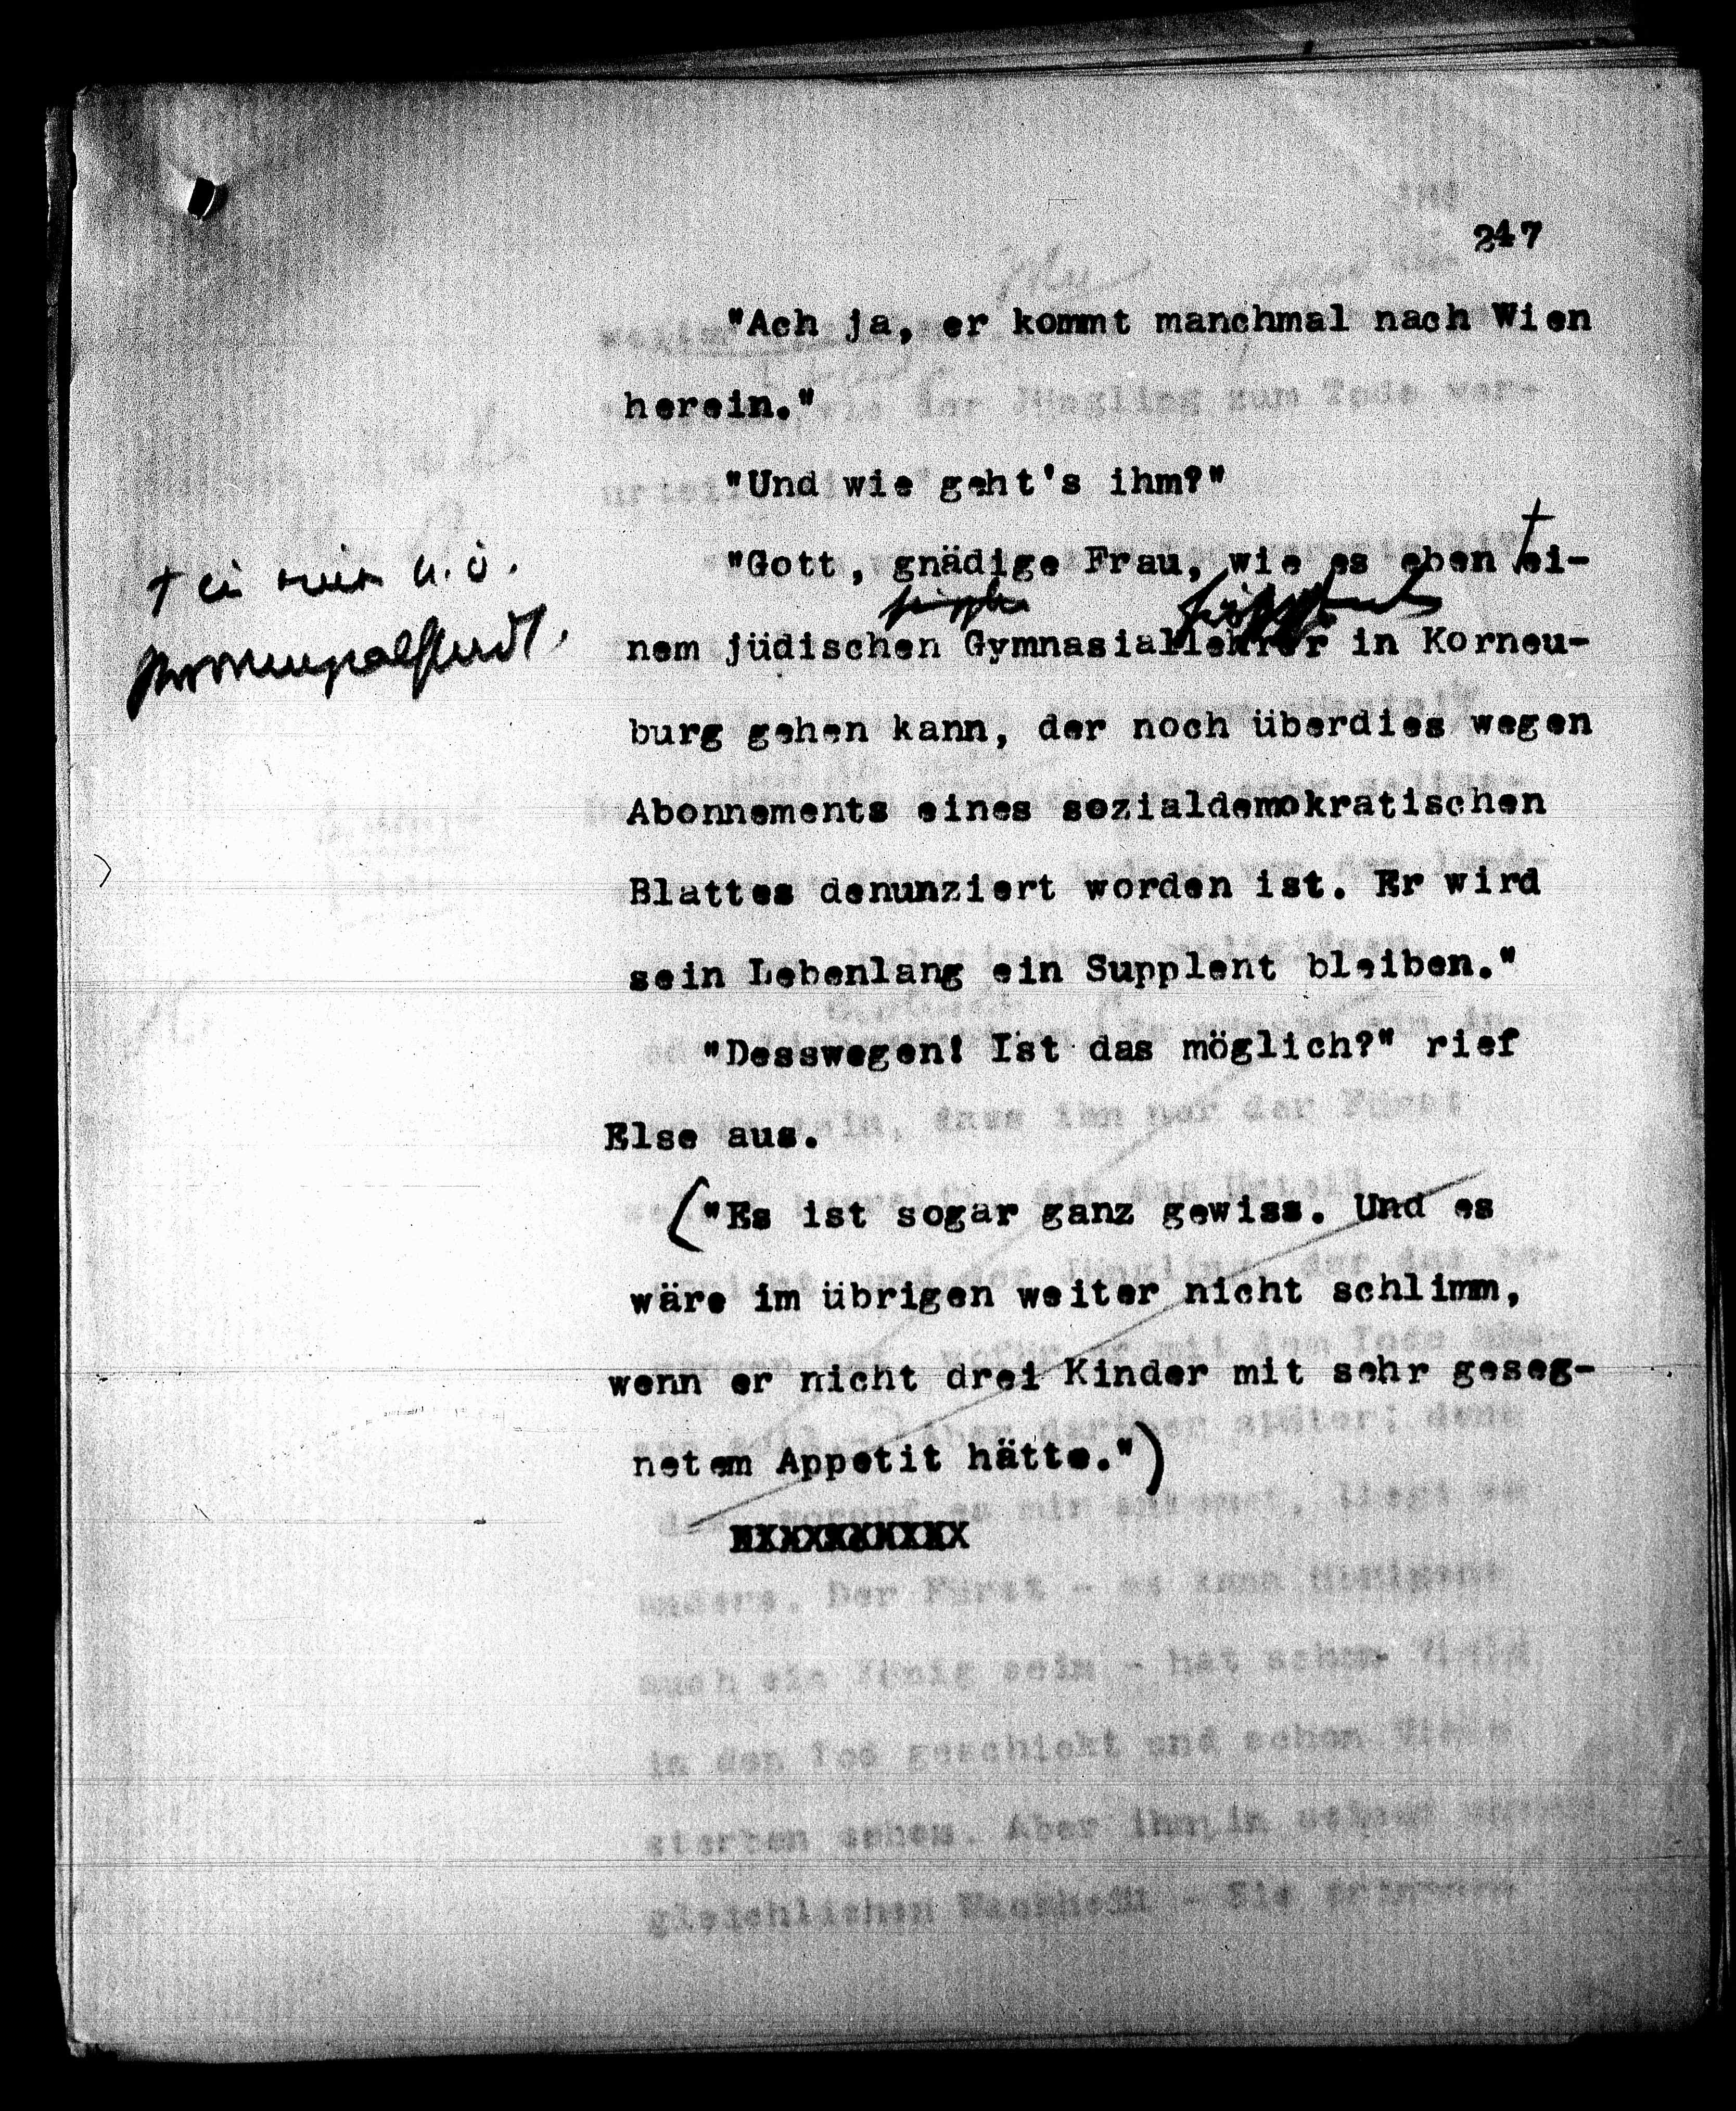 247
"Ach ja, er kommt manchmal nach Wien
herein."
"Und wie geht's ihm?"
"Gott, gnädige Frau, wie es eben ei-
nem jüdischen Gymnasiallehrer in Korneu-
burg gehen kann, der noch überdies wegen
Abonnements eines sozialdemokratischen
Blattes denunziert worden ist. Er wird
sein Lebenlang ein Supplent bleiben."
"Desswegen! Ist das möglich?" rief
Else aus.
("Es ist sogar ganz gewiss. Und es
wäre im übrigen weiter nicht schlimm,
wenn er nicht drei Kinder mit sehr geseg-
netem Appetit hätte.")